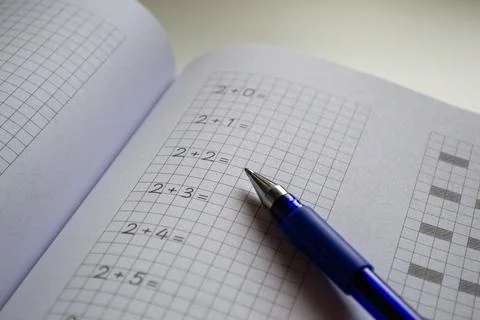 2+0=
2+1=
2+2=
2+3=
2+4=
2+5=